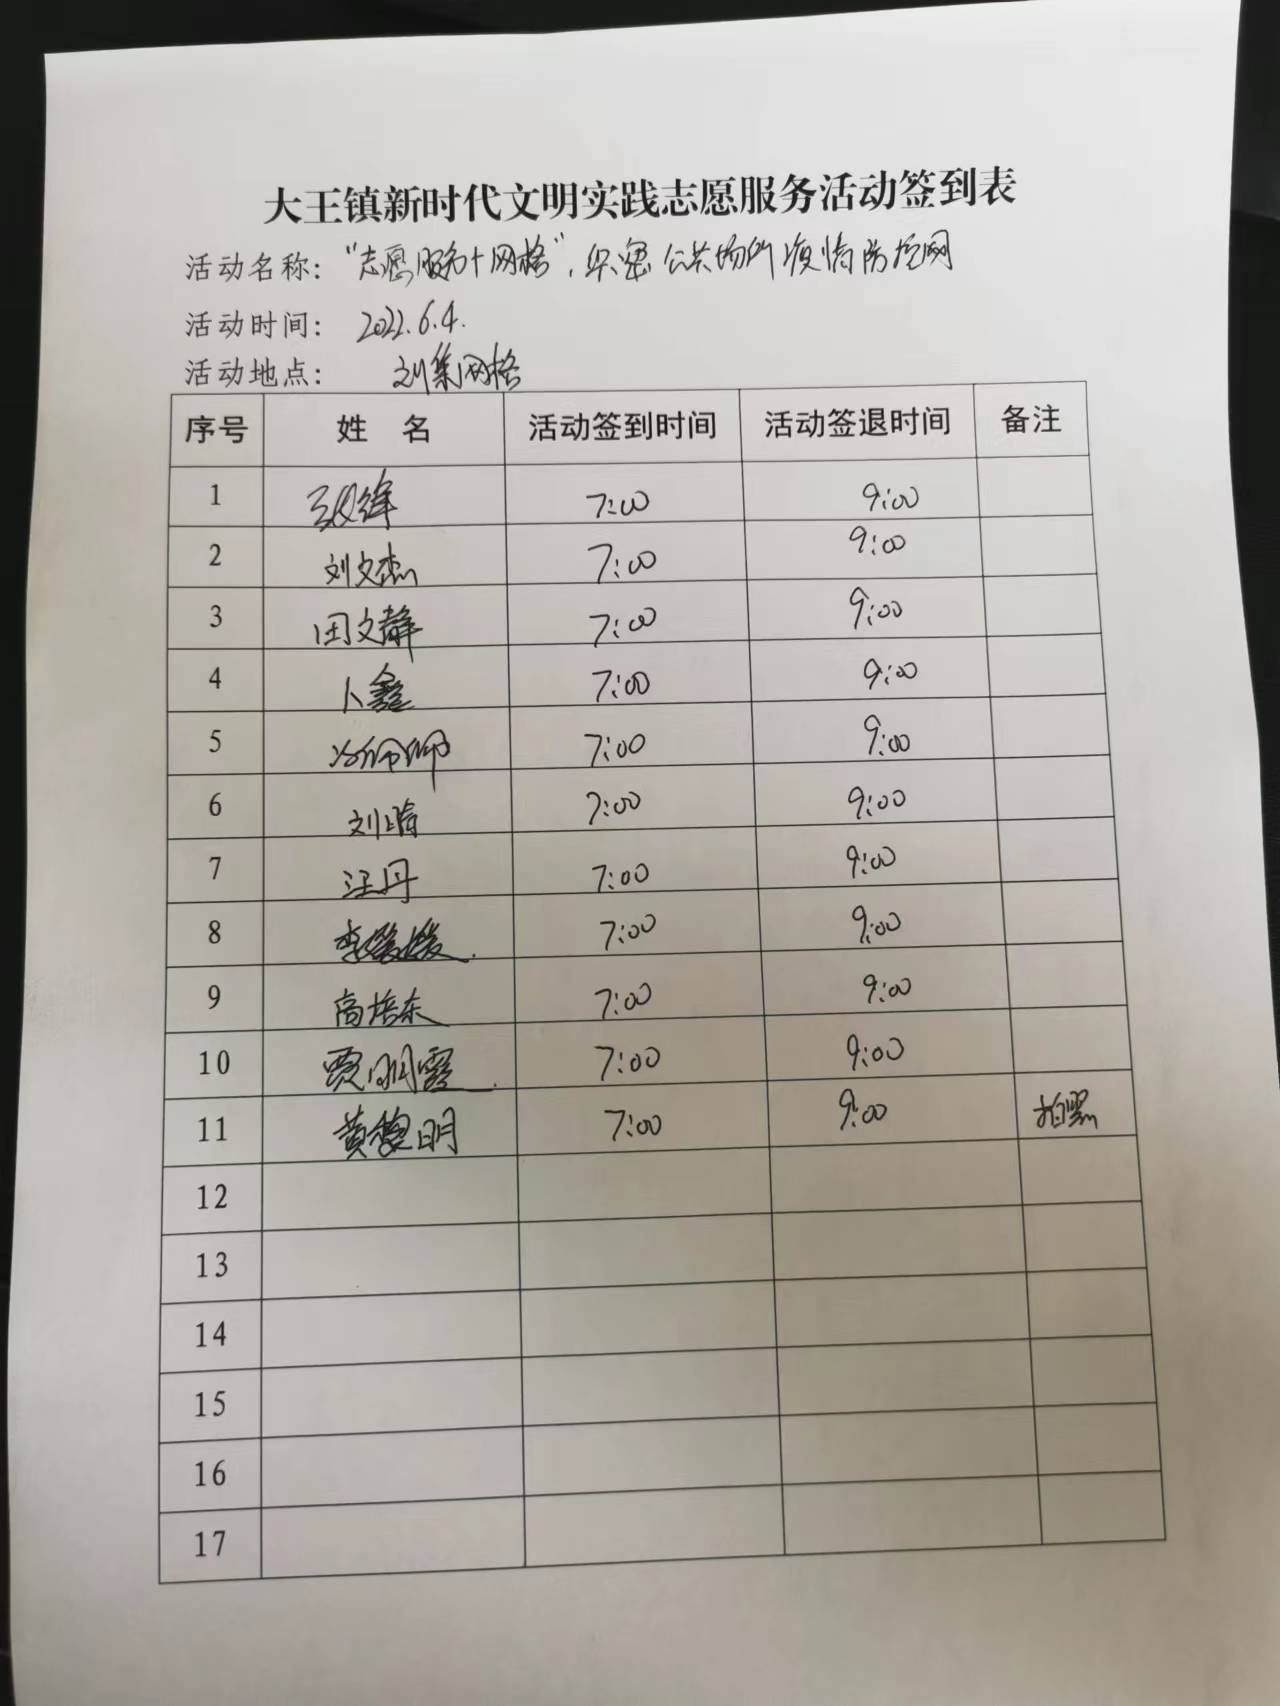 大王镇新时代文明实践志愿服务活动签到表
活动名称：“志愿服务+网格”，织密公共场所疫情防控网
活动时间：2022.6.4.
活动地点：刘集网格
序号 姓名 活动签到时间 活动签退时间 备注
1 7:00 9:00
2 刘文杰 7:00 9:00
3 田文静 7:00 9:00
4 卜鑫 7:00 9:00
5 7:00 9:00
6 刘晴 7:00 9:00
7 汪丹 7:00 9:00
8 李媛媛 7:00 9:00
9 高培东 7:00 9:00
10 贾明霞 7:00 9:00
11 黄黎明 7:00 9:00 拍照
12
13
14
15
16
17